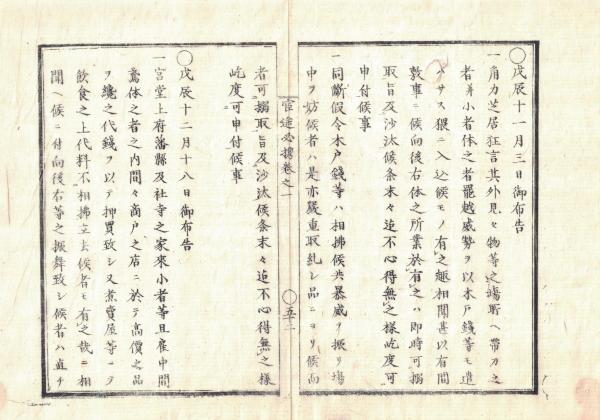 ◯戊辰十一月三日御布告
一角力芝居狂言其外見セ物等之場所ヘ帯刀之
者并小者体之者罷越威勢ヲ以木戸錢等モ遣
ハサス猥ニ入込候モノ有之趣相聞甚以有間
敷事ニ候向後右体之所業於有之ハ即時可搦
取旨及沙汰候条末々迄不心得無之様屹度可
申付候事
一同断假令木戸錢等ハ相拂候共暴威ヲ振リ場
中ヲ妨候者ハ是亦嚴重取糺シ品ニヨリ候而
官途必携巻之一
◯五十二
者可搦取旨及沙汰候条末々迄不心得無之様
屹度可申付候事
◯戊辰十二月十八日御布告
一宮堂上府藩縣及社寺之家來小者等且雇中間
鳶体之者之内間々商戸之店ニ於テ高價之品
ヲ纔之代錢ヲ以テ押買致シ又煮賣屋等ニテ
飲食之上代料不相拂立去候者モ有之哉ニ相
聞ヘ候ニ付向後右等之振舞致シ候者ハ直チ